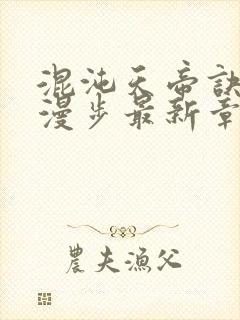 混沌天帝訣
漫步最新章
農夫漁父